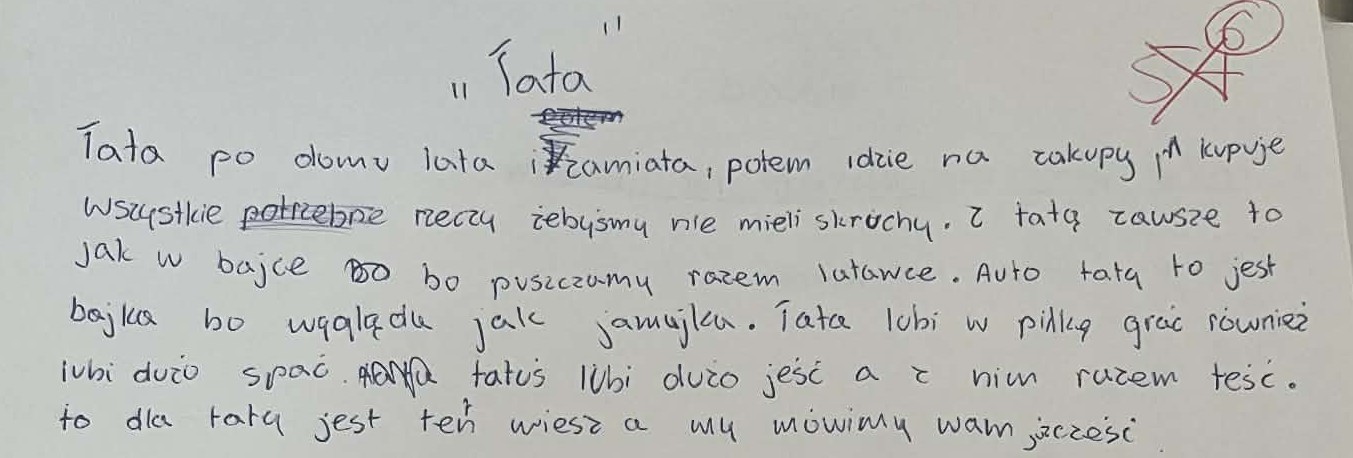 „Tata"
6
Tata po domu lata i zamiata, potem idzie na zakupy, kupuje
wszystkie potrzebne rzeczy żebyśmy nie mieli skruchy. z tatą zawsze to
jak w bajce bo puszczamy razem latawce. Auto taty to jest
bajka bo wygląda jak jamajka. Tata lubi w piłkę grać również
lubi dużo spać. tatuś lubi dużo jeść a z nim razem teść.
to dla taty jest ten wiesz a my mówimy wam cześć